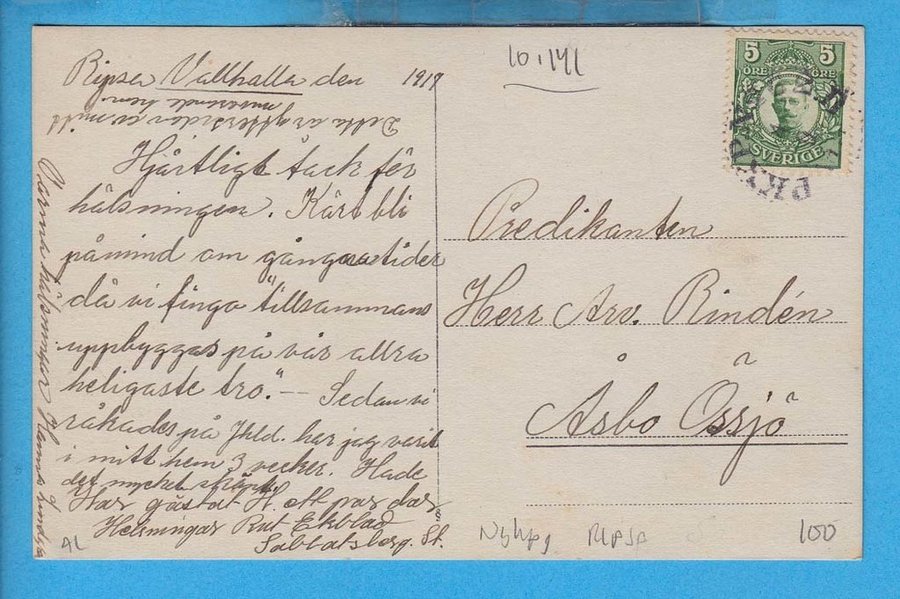 Ripsa Vallhalla den 1917
Detta är efterskidan av mitt
nuvarande hem.
Hjärtligt tack för
hälsningen. Kärt bli
påmind om gångna tider
då vi finga "tillsammans
uppbyggas på vår allra
heligaste tro". — Sedan vi
råkades på Jhld. har jag varit
i mitt hem 3 veckor. Hade
det mycket skönt.
Har gästat H. ett par dar
Helsningar Rut Ekblad
Sabbatsberg. St.
Varma hälsningar
10,141
5 5
ÖRE ÖRE
SVERIGE
Predikanten
Herr Arv. Rindén
Åsbo Össjö
AL
Nyhpg RIPSA
100